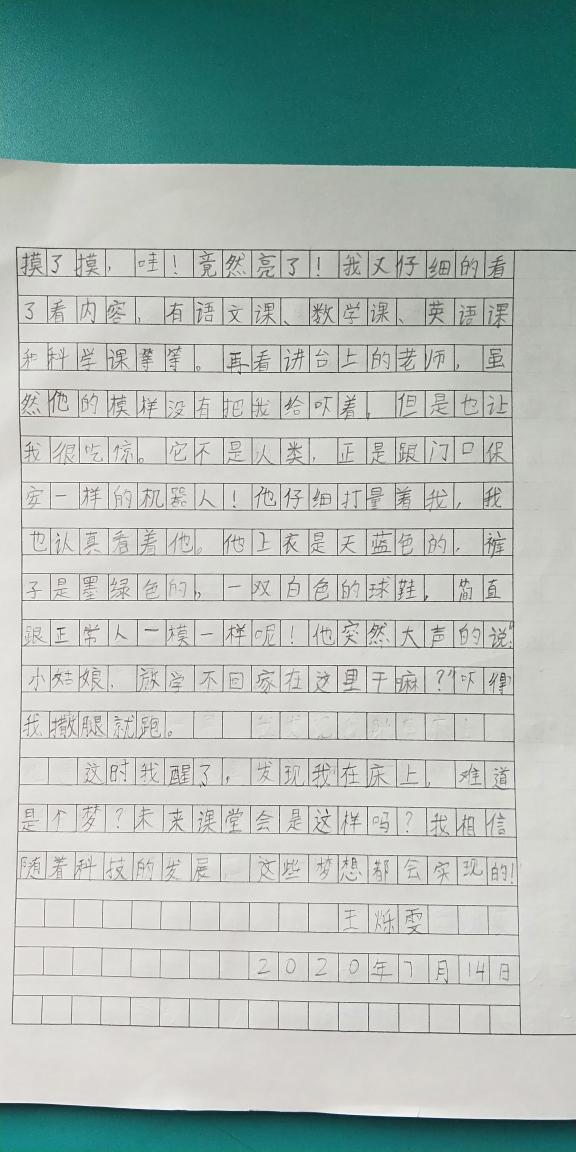 摸了摸，哇！竟然亮了！我又仔细的看
了看内容，有语文课、数学课、英语课
和科学课等等。再看讲台上的老师，虽
然他的模样没有把我给吓着，但是也让
我很吃惊。它不是人类，正是跟门口保
安一样的机器人！他仔细打量着我，我
也认真看着他。他上衣是天蓝色的，裤
子是墨绿色的，一双白色的球鞋，简直
跟正常人一模一样呢！他突然大声的说：“
小姑娘，放学不回家在这里干嘛？”吓得
我撒腿就跑。
这时我醒了，发现我在床上，难道
是个梦？未来课堂会是这样吗？我相信
随着科技的发展，这些梦想都会实现的！
王烁雯
2020年7月14日